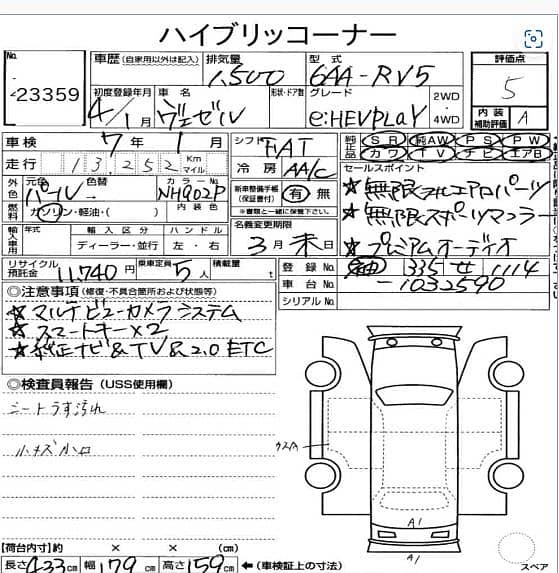 ハイブリッドコーナー
No. 23359
車歴(自家用以外は記入) 排気量 1,500 型式 6AA-RV5 評価点 5
初度登録年月 4/1月 車名 ヴェゼル 形状・ドア数 グレード e:HEVPLaY 2WD・4WD 内装補助評価 A
車検 7年 1月 シフト FAT 純正品 SR 純AW PS PW
走行 13,252 Km マイル 冷房 AA/C カワ TV ナビ エアB
外色 元色 パール 色替 カラーNo. NH902P 新車整備手帳(保証書付) 有 無 ※書類と一緒に保管下さい
燃料 ガソリン・軽油・( ) 内装色
輸入車 年式 輸入区分 ディーラー・並行 ハンドル 左・右 名義変更期限 3月末日
セールスポイント
☆無限フルエアロパーツ
☆無限スポーツマフラー
☆プレミアムオーディオ
リサイクル預託金 11,740円 乗車定員 5人 積載量 t 登録No. 335 せ 1114
車台No. -1032590
シリアルNo.
◎注意事項(修復・不具合箇所および状態等)
☆マルチビューカメラシステム
☆スマートキー×2
☆純正ナビ&TV&2.0ETC
◎検査員報告(USS使用欄)
シートうす汚れ
小キズ小凹
A1
A1
【荷台内寸】約 × × (cm)
長さ433cm 幅179cm 高さ159cm ←(車検証上の寸法)
スペア